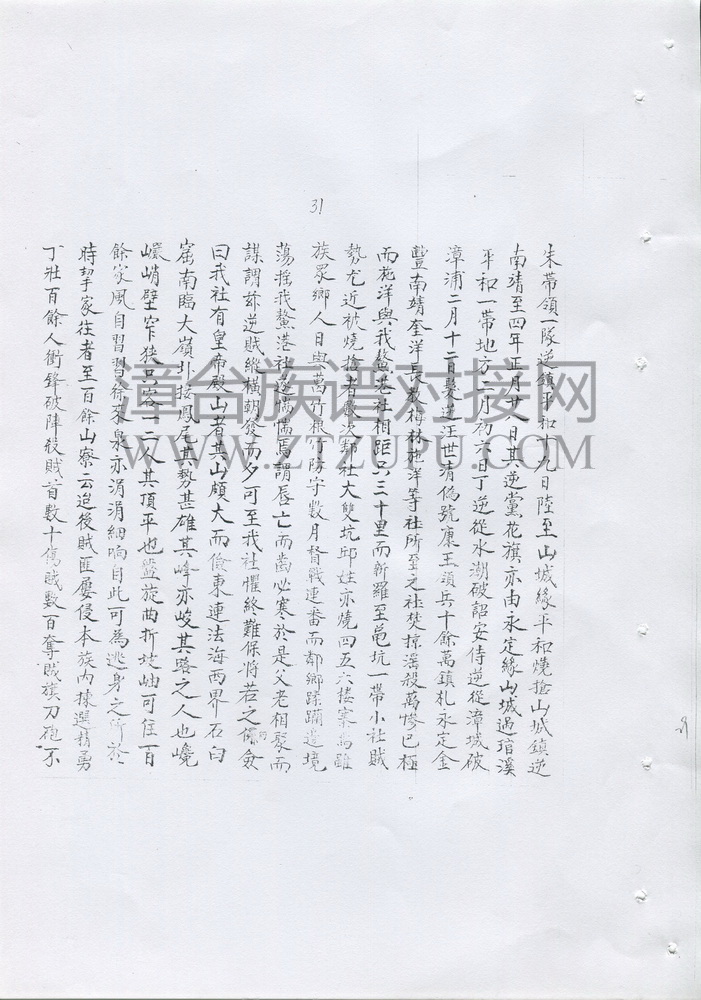 31
朱帶領一隊逆鎮平和十九日陸至山城緣平和燒搶山城鎮逆
南靖至四年正月廿一日其逆黨花旗亦由永定緣山城過琯溪
平和一帶地方二月初六日丁逆從水潮破詔安侍逆從漳城破
漳浦二月十二日髮逆汪世清偽號康王領兵十餘萬鎮札永定金
豐南靖奎洋長教梅林施洋等社所至之社焚掠滛殺萬慘已極
而施洋與我鰲港社相距只三十里而新羅至龜坑一帶小社賊
勢尤近被燒搶者嚴次鄰社大雙坑邱姓亦燒四五六樓寨焉雖
族眾鄉人日與萬竹根竹防守數月督戰連番而鄰鄉蹂躪邊境
蕩搖我鰲港社邊惴惴焉謂唇亡而齒必寒於是父老相聚而
謀謂茲逆賊縱橫朝發而夕可至我社懼終難保將若之何僉
曰我社有皇帝殿山者其山頗大而儉東連法海西界石臼
窟南臨大嶺北接鳳尾其勢甚雄其峰亦峻其路之人也巉
巖峭壁窄狹只容一二人其頂平也盤旋曲折坡岫可住一百
餘家風自習習徐來泉亦涓涓細响自此可為逃身之所於
時挈家往者至百餘山寮云迨後賊匪屢侵本族內揀選精勇
丁壯百餘人衝鋒破陣殺賊首數十傷賊數百奪賊旗刀砲不
漳台族谱对接网
WWW.ZTZUPU.COM